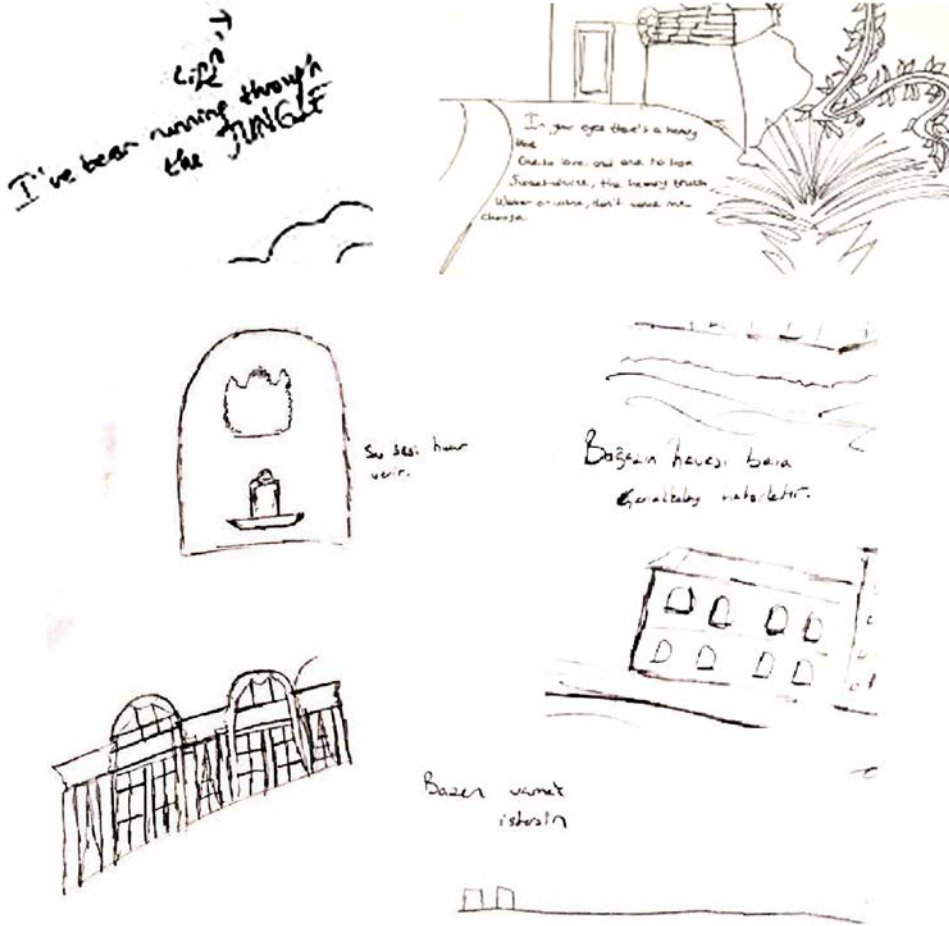 Life
I've been running through
the JUNGLE
In your eyes there's a heavy
blue
One to love and one to lose
Sweet divide, the heavy truth
Water or wine, don't make me
choose
Su sesi huzur
verir.
Boğazın havası bana
Çanakkaleyi hatırlatır.
Bazen
istersin